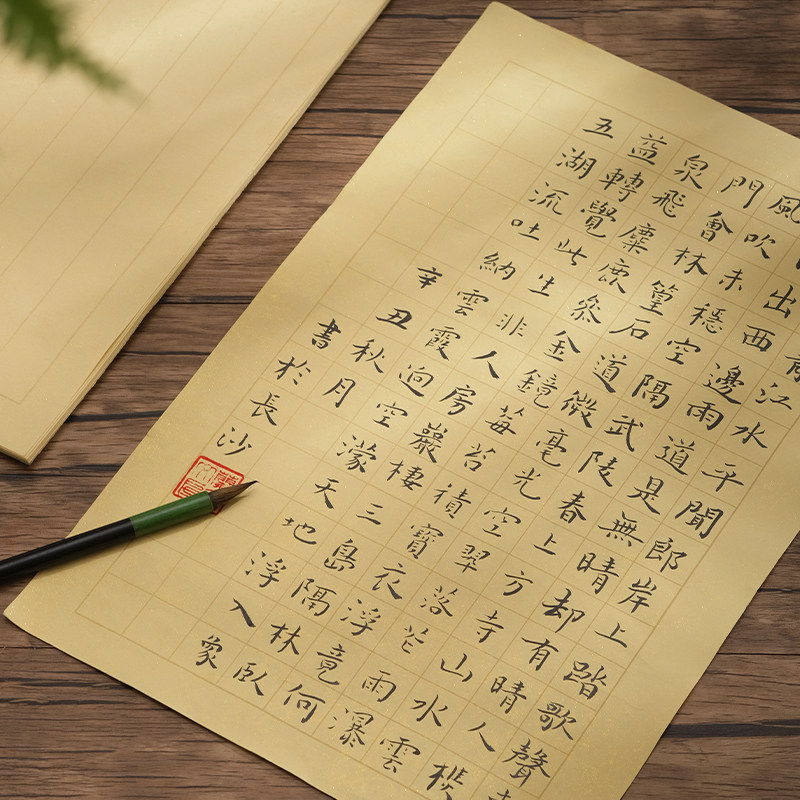 江水平聞郎岸上踏歌聲
出西邊雨道是無晴却有晴人
風吹未穩空隔武陵春上方寺山水雲
門會林篁石道微毫光空翠落芒雨瀑
泉飛麋鹿叅金鏡莓苔積寶衣浮竟何
益轉覺此生非人房巖棲三島隔林臥
五湖流吐納雲霞迥空濛天地浮入象
辛丑秋月
書於長沙